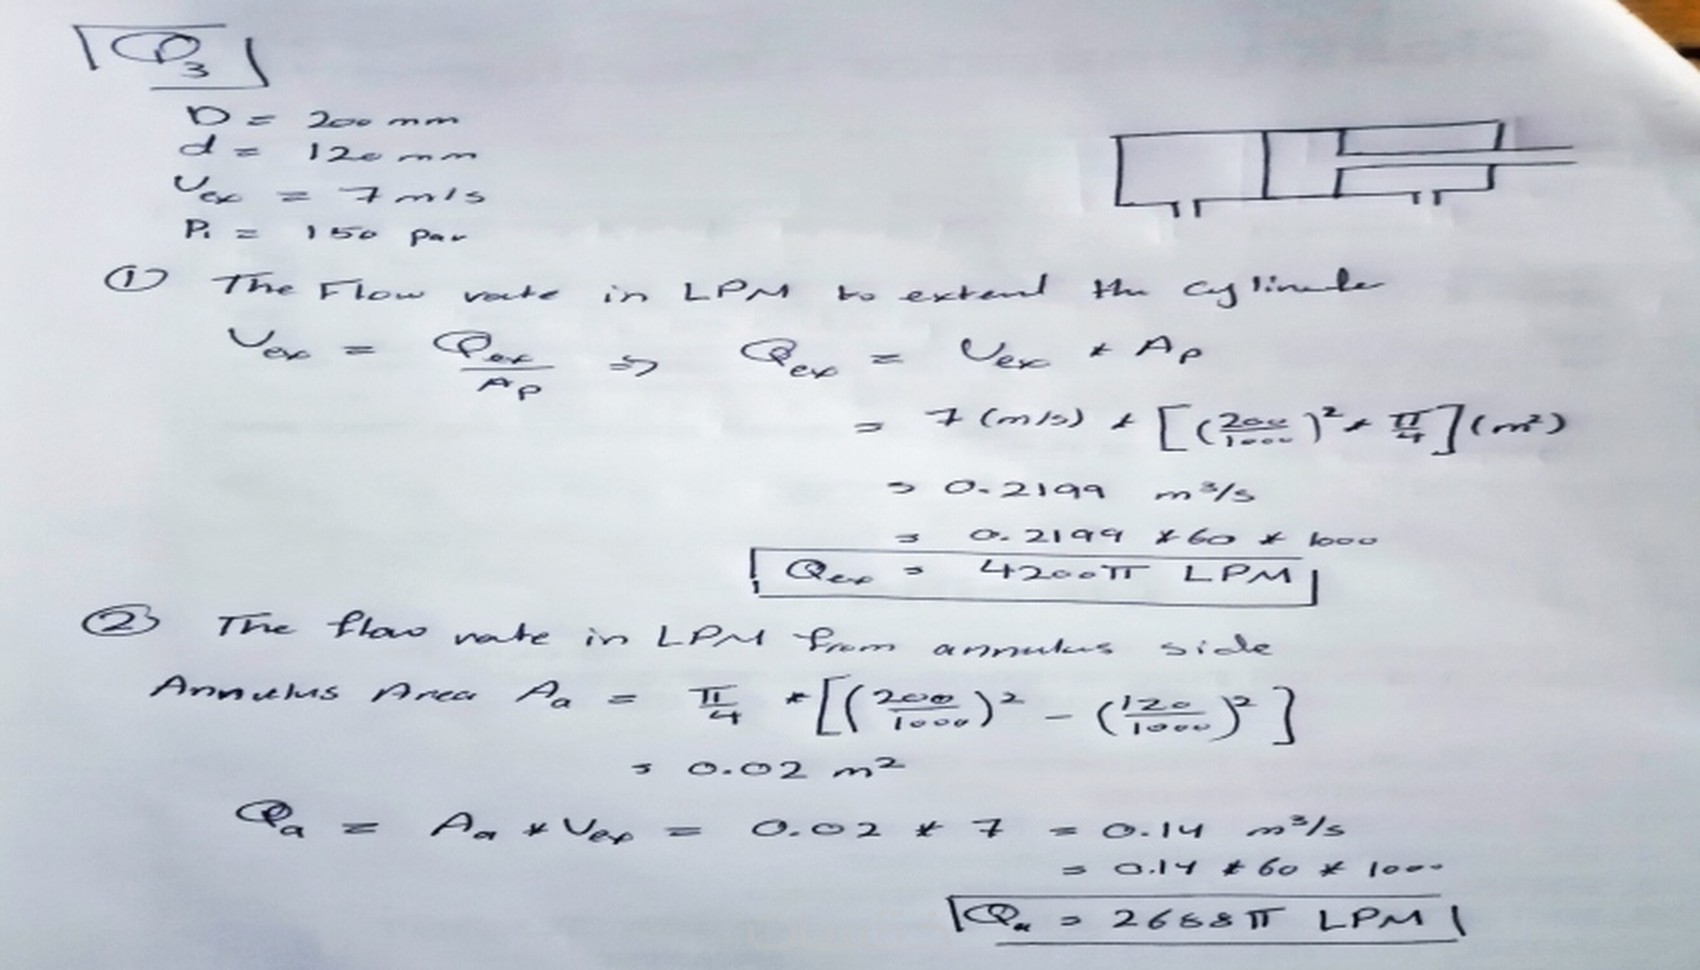 Q3
D = 200 mm
d = 120 mm
Uex = 7 m/s
Pi = 150 par
① The Flow rate in LPM to extend the cylinder
Uex = Qex / Ap ⇒ Qex = Uex * Ap
= 7 (m/s) * [(200/1000)² * π/4] (m²)
= 0.2199 m³/s
= 0.2199 * 60 * 1000
Qex = 4200π LPM
② The flow rate in LPM from annulus side
Annulus Area Aa = π/4 * [(200/1000)² - (120/1000)²]
= 0.02 m²
Qa = Aa * Uex = 0.02 * 7 = 0.14 m³/s
= 0.14 * 60 * 1000
Qa = 2688π LPM